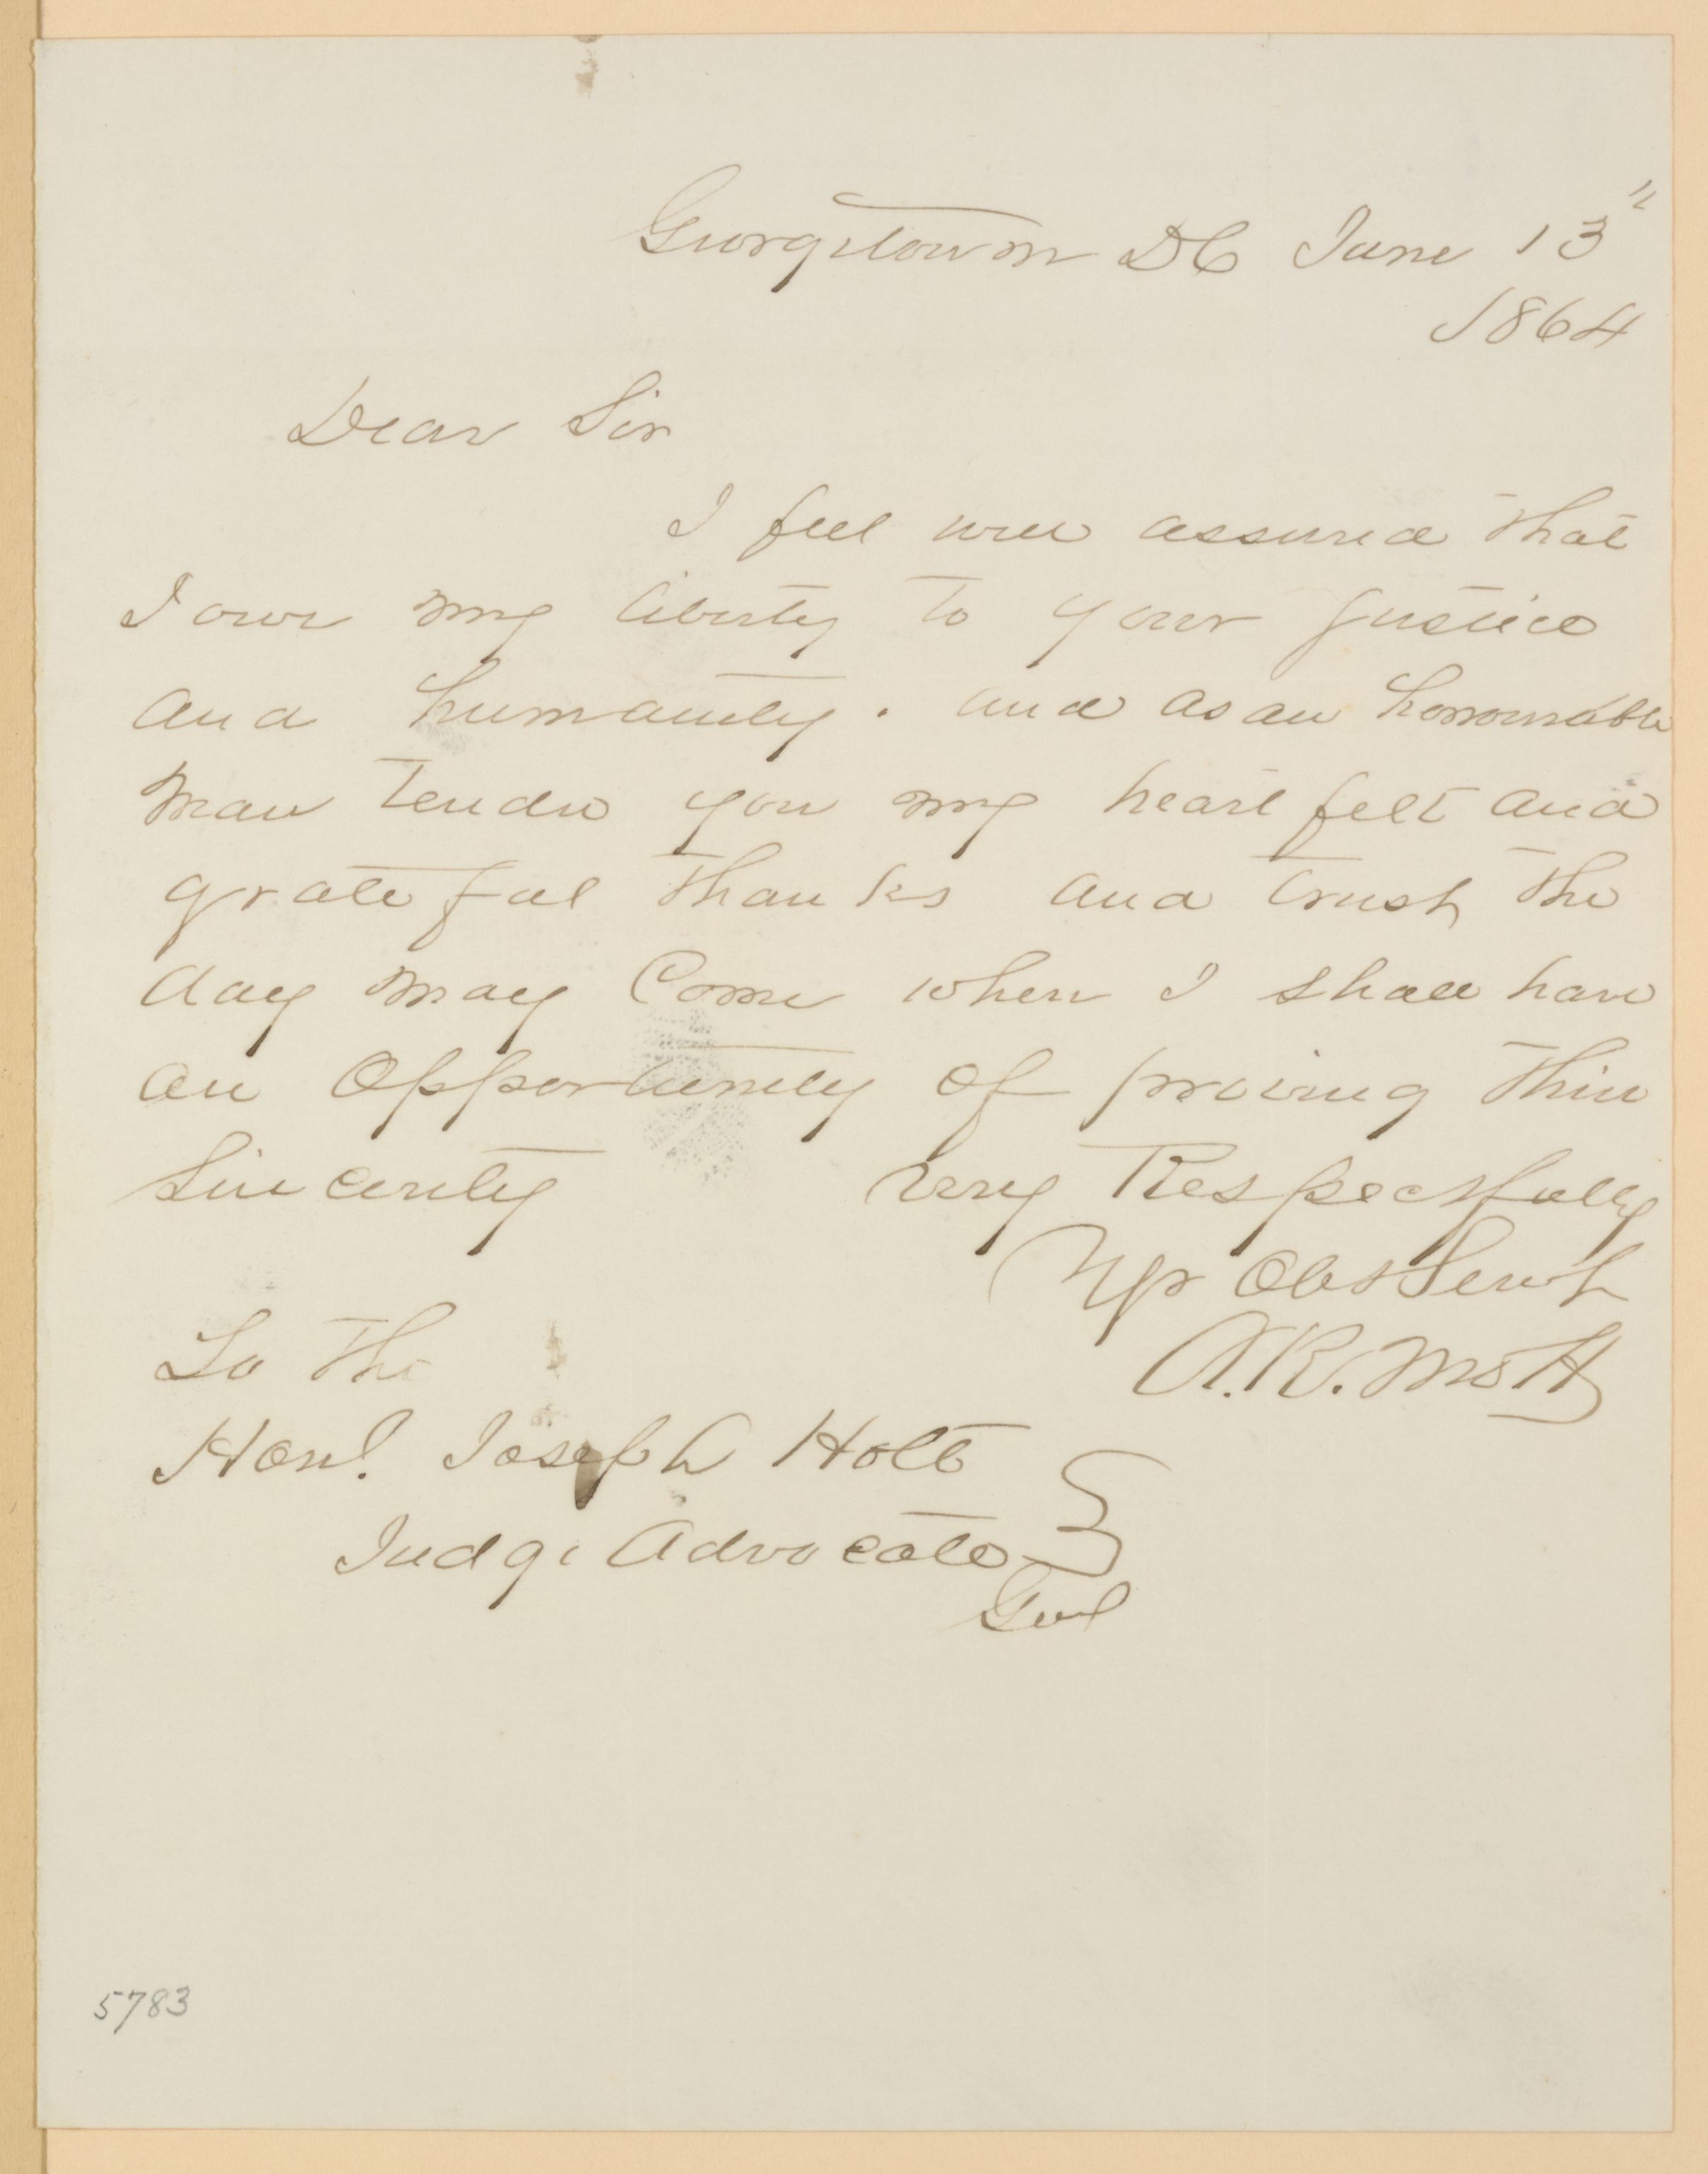 Georgetown DC June 13"
1864
Dear Sir
I feel well assured that
I owe my liberty to your justice
and humanity. and as an honourable
man tender you my heart felt and
grateful thanks and trust the
day may Come when I shall have
an Opportunity of proving their
Sincerity Very Respectfully
Yr Obt Servt
A. R. Mott
To The
Honl. Joseph Holt
Judge Advocate
Genl
5783